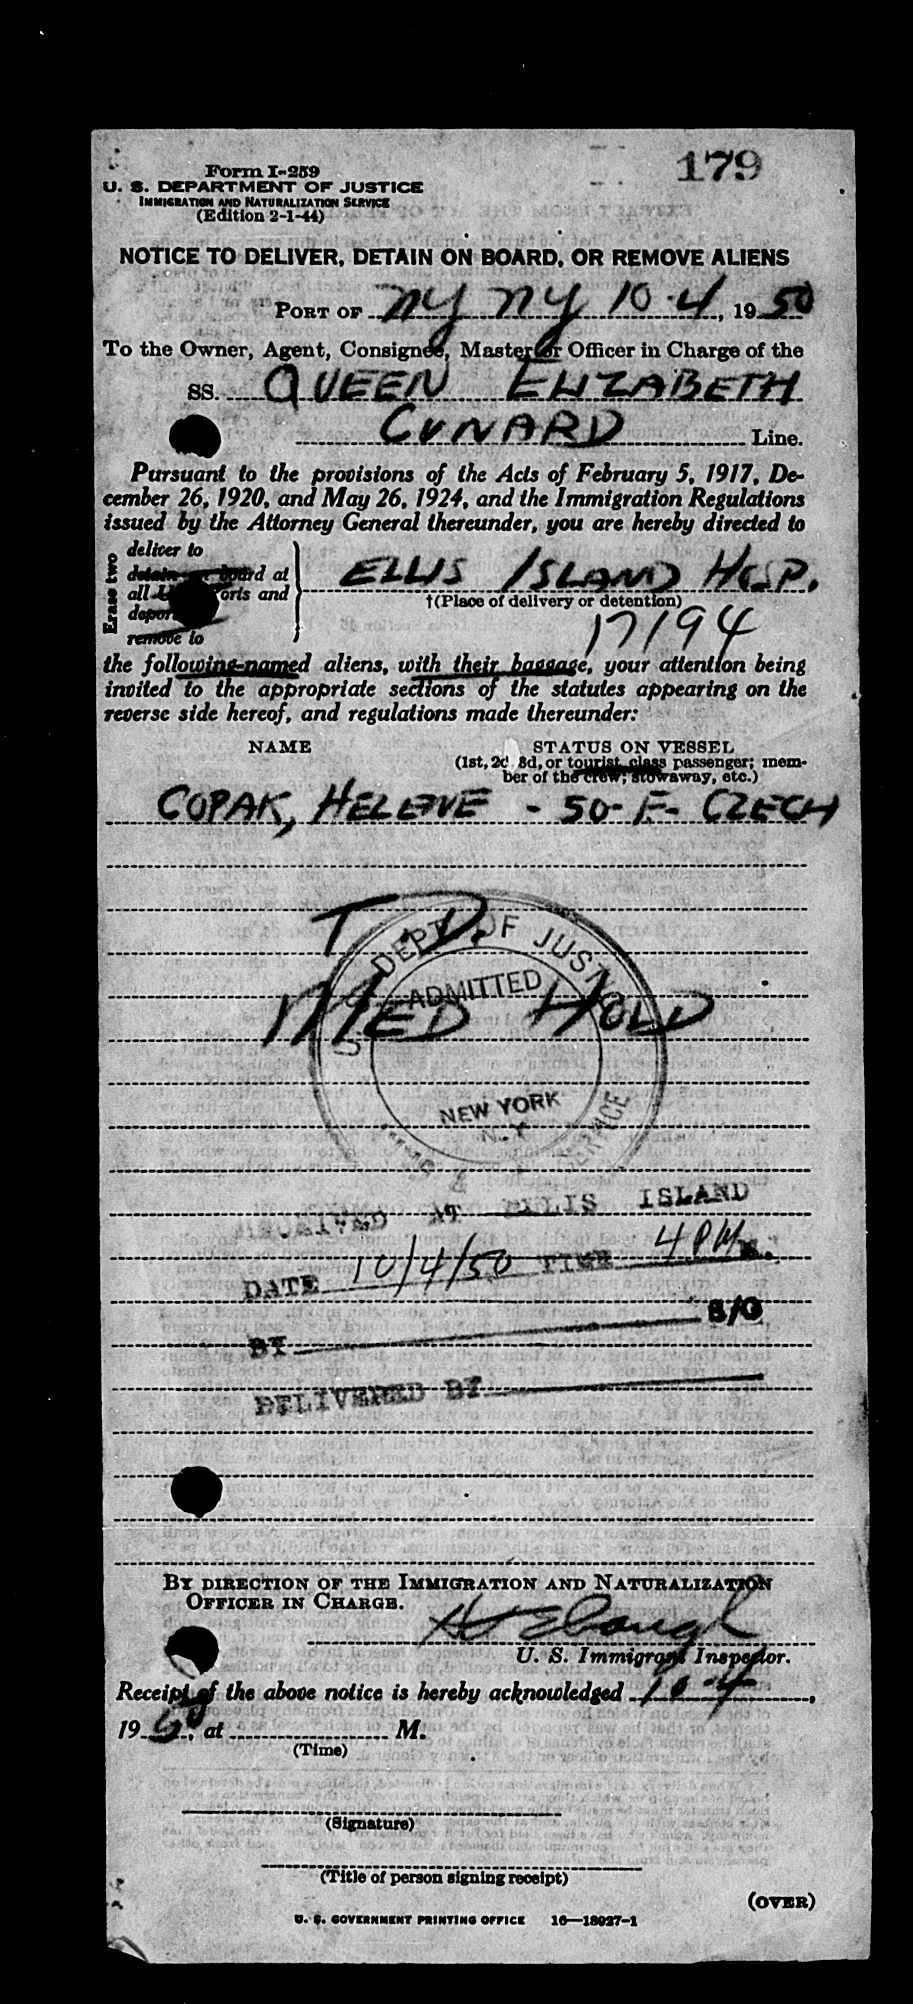 179
Form I-259
U. S. DEPARTMENT OF JUSTICE
IMMIGRATION AND NATURALIZATION SERVICE
(Edition 2-1-44)
NOTICE TO DELIVER, DETAIN ON BOARD, OR REMOVE ALIENS
PORT OF NY NY 10-4, 1950
To the Owner, Agent, Consignee, Master or Officer in Charge of the
SS. QUEEN ELIZABETH
CUNARD Line.
Pursuant to the provisions of the Acts of February 5, 1917, De-
cember 26, 1920, and May 26, 1924, and the Immigration Regulations
issued by the Attorney General thereunder, you are hereby directed to
Erase two
deliver to
detain board at
all orts and
remove to
ELLIS ISLAND HOSP.
†(Place of delivery or detention)
17194
the following-named aliens, with their baggage, your attention being
invited to the appropriate sections of the statutes appearing on the
reverse side hereof, and regulations made thereunder:
NAME STATUS ON VESSEL
(1st, 2d 3d, or tourist class passenger; mem-
ber of the crew; stowaway, etc.)
COPAK, HELENE - 50- F- CZECH
T.D.
DEPT. OF JUST
ADMITTED
MED HOLD
NEW YORK
N.Y.
SERVICE
RECEIVED AT ELLIS ISLAND
DATE 10/4/50 TIME 4 PM M.
S/G
BY
DELIVERED BY
BY DIRECTION OF THE IMMIGRATION AND NATURALIZATION
OFFICER IN CHARGE.
U. S. Immigrant Inspector.
Receipt of the above notice is hereby acknowledged 10-4,
1950, at M.
(Time)
(Signature)
(Title of person signing receipt)
(OVER)
U. S. GOVERNMENT PRINTING OFFICE 16—18027-1